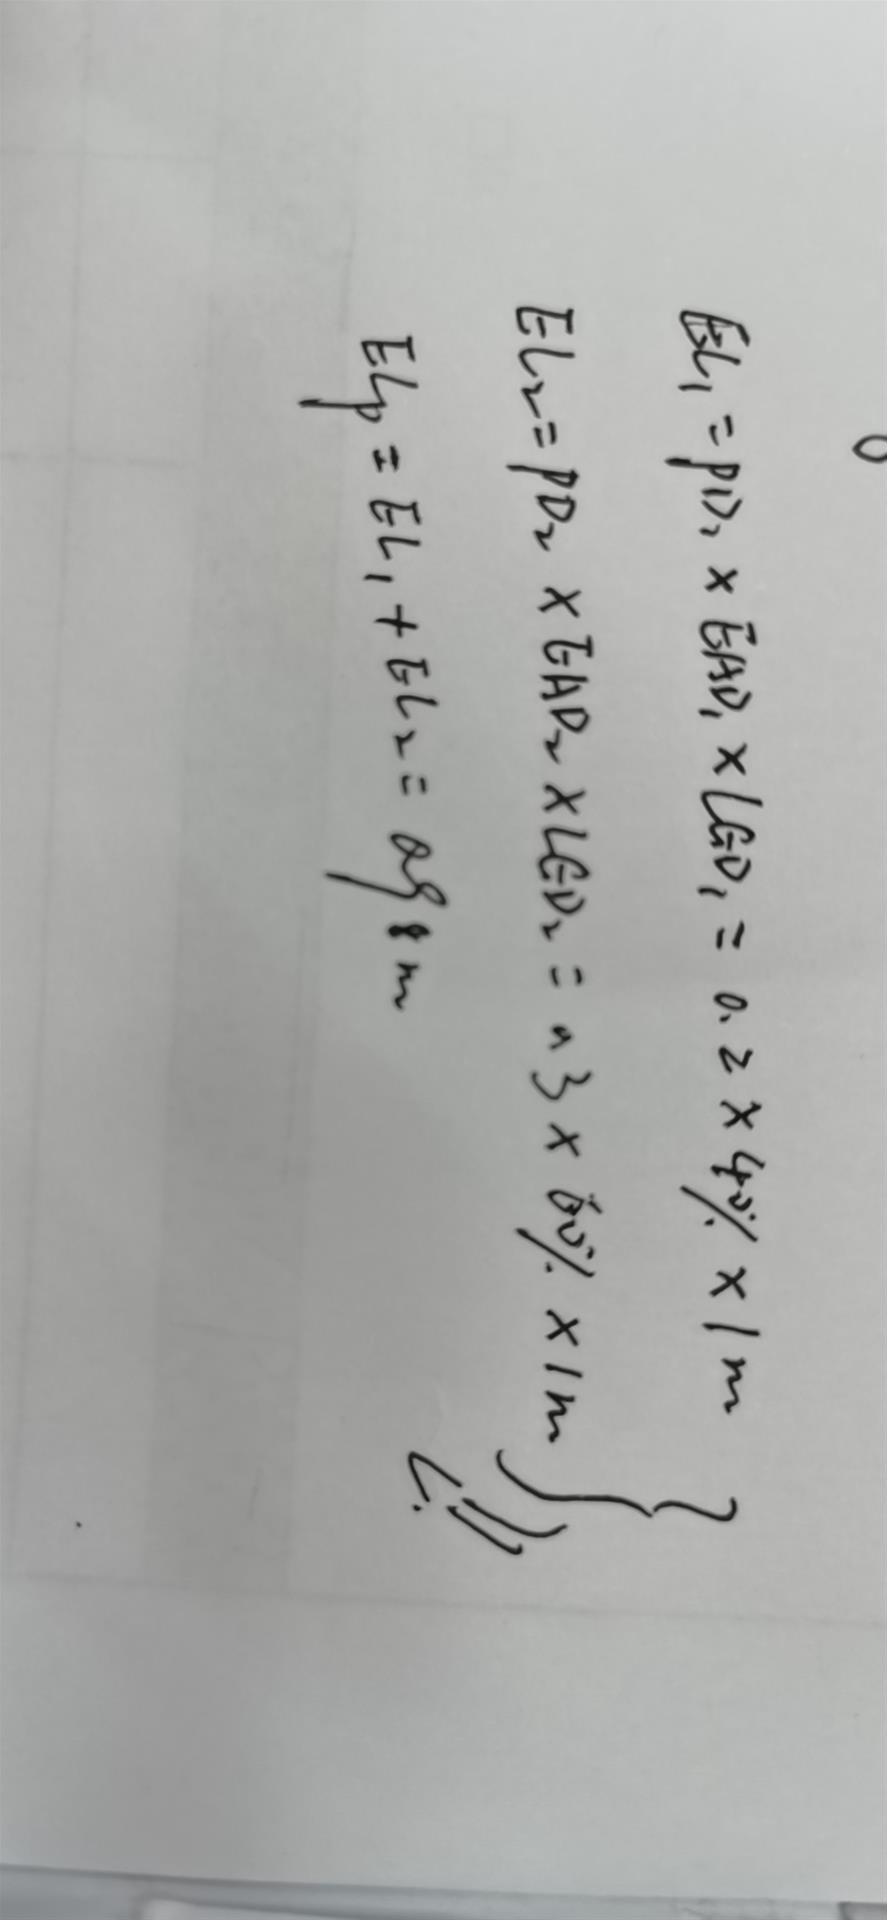 EL₁ = PD₁ × EAD₁ × LGD₁ = 0.2 × 40% × 1m
EL₂ = PD₂ × EAD₂ × LGD₂ = 0.3 × 60% × 1m
ELp = EL₁ + EL₂ =